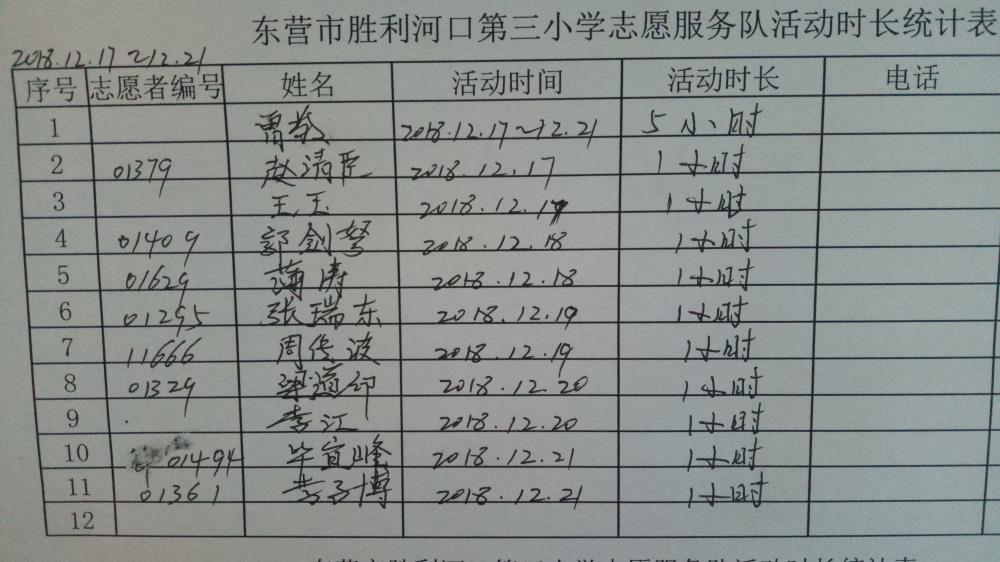 东营市胜利河口第三小学志愿服务队活动时长统计表
2018.12.17~12.21
序号 志愿者编号 姓名 活动时间 活动时长 电话
1 2018.12.17~12.21 5小时
2 01379 赵清臣 2018.12.17 1小时
3 王玉 2018.12.17 1小时
4 01409 郭剑弩 2018.12.18 1小时
5 01629 薄涛 2018.12.18 1小时
6 01295 张瑞东 2018.12.19 1小时
7 11666 周传波 2018.12.19 1小时
8 01329 2018.12.20 1小时
9 李江 2018.12.20 1小时
10 01494 毕宣峰 2018.12.21 1小时
11 01361 李子博 2018.12.21 1小时
12
东营市胜利河口第三小学志愿服务队活动时长统计表